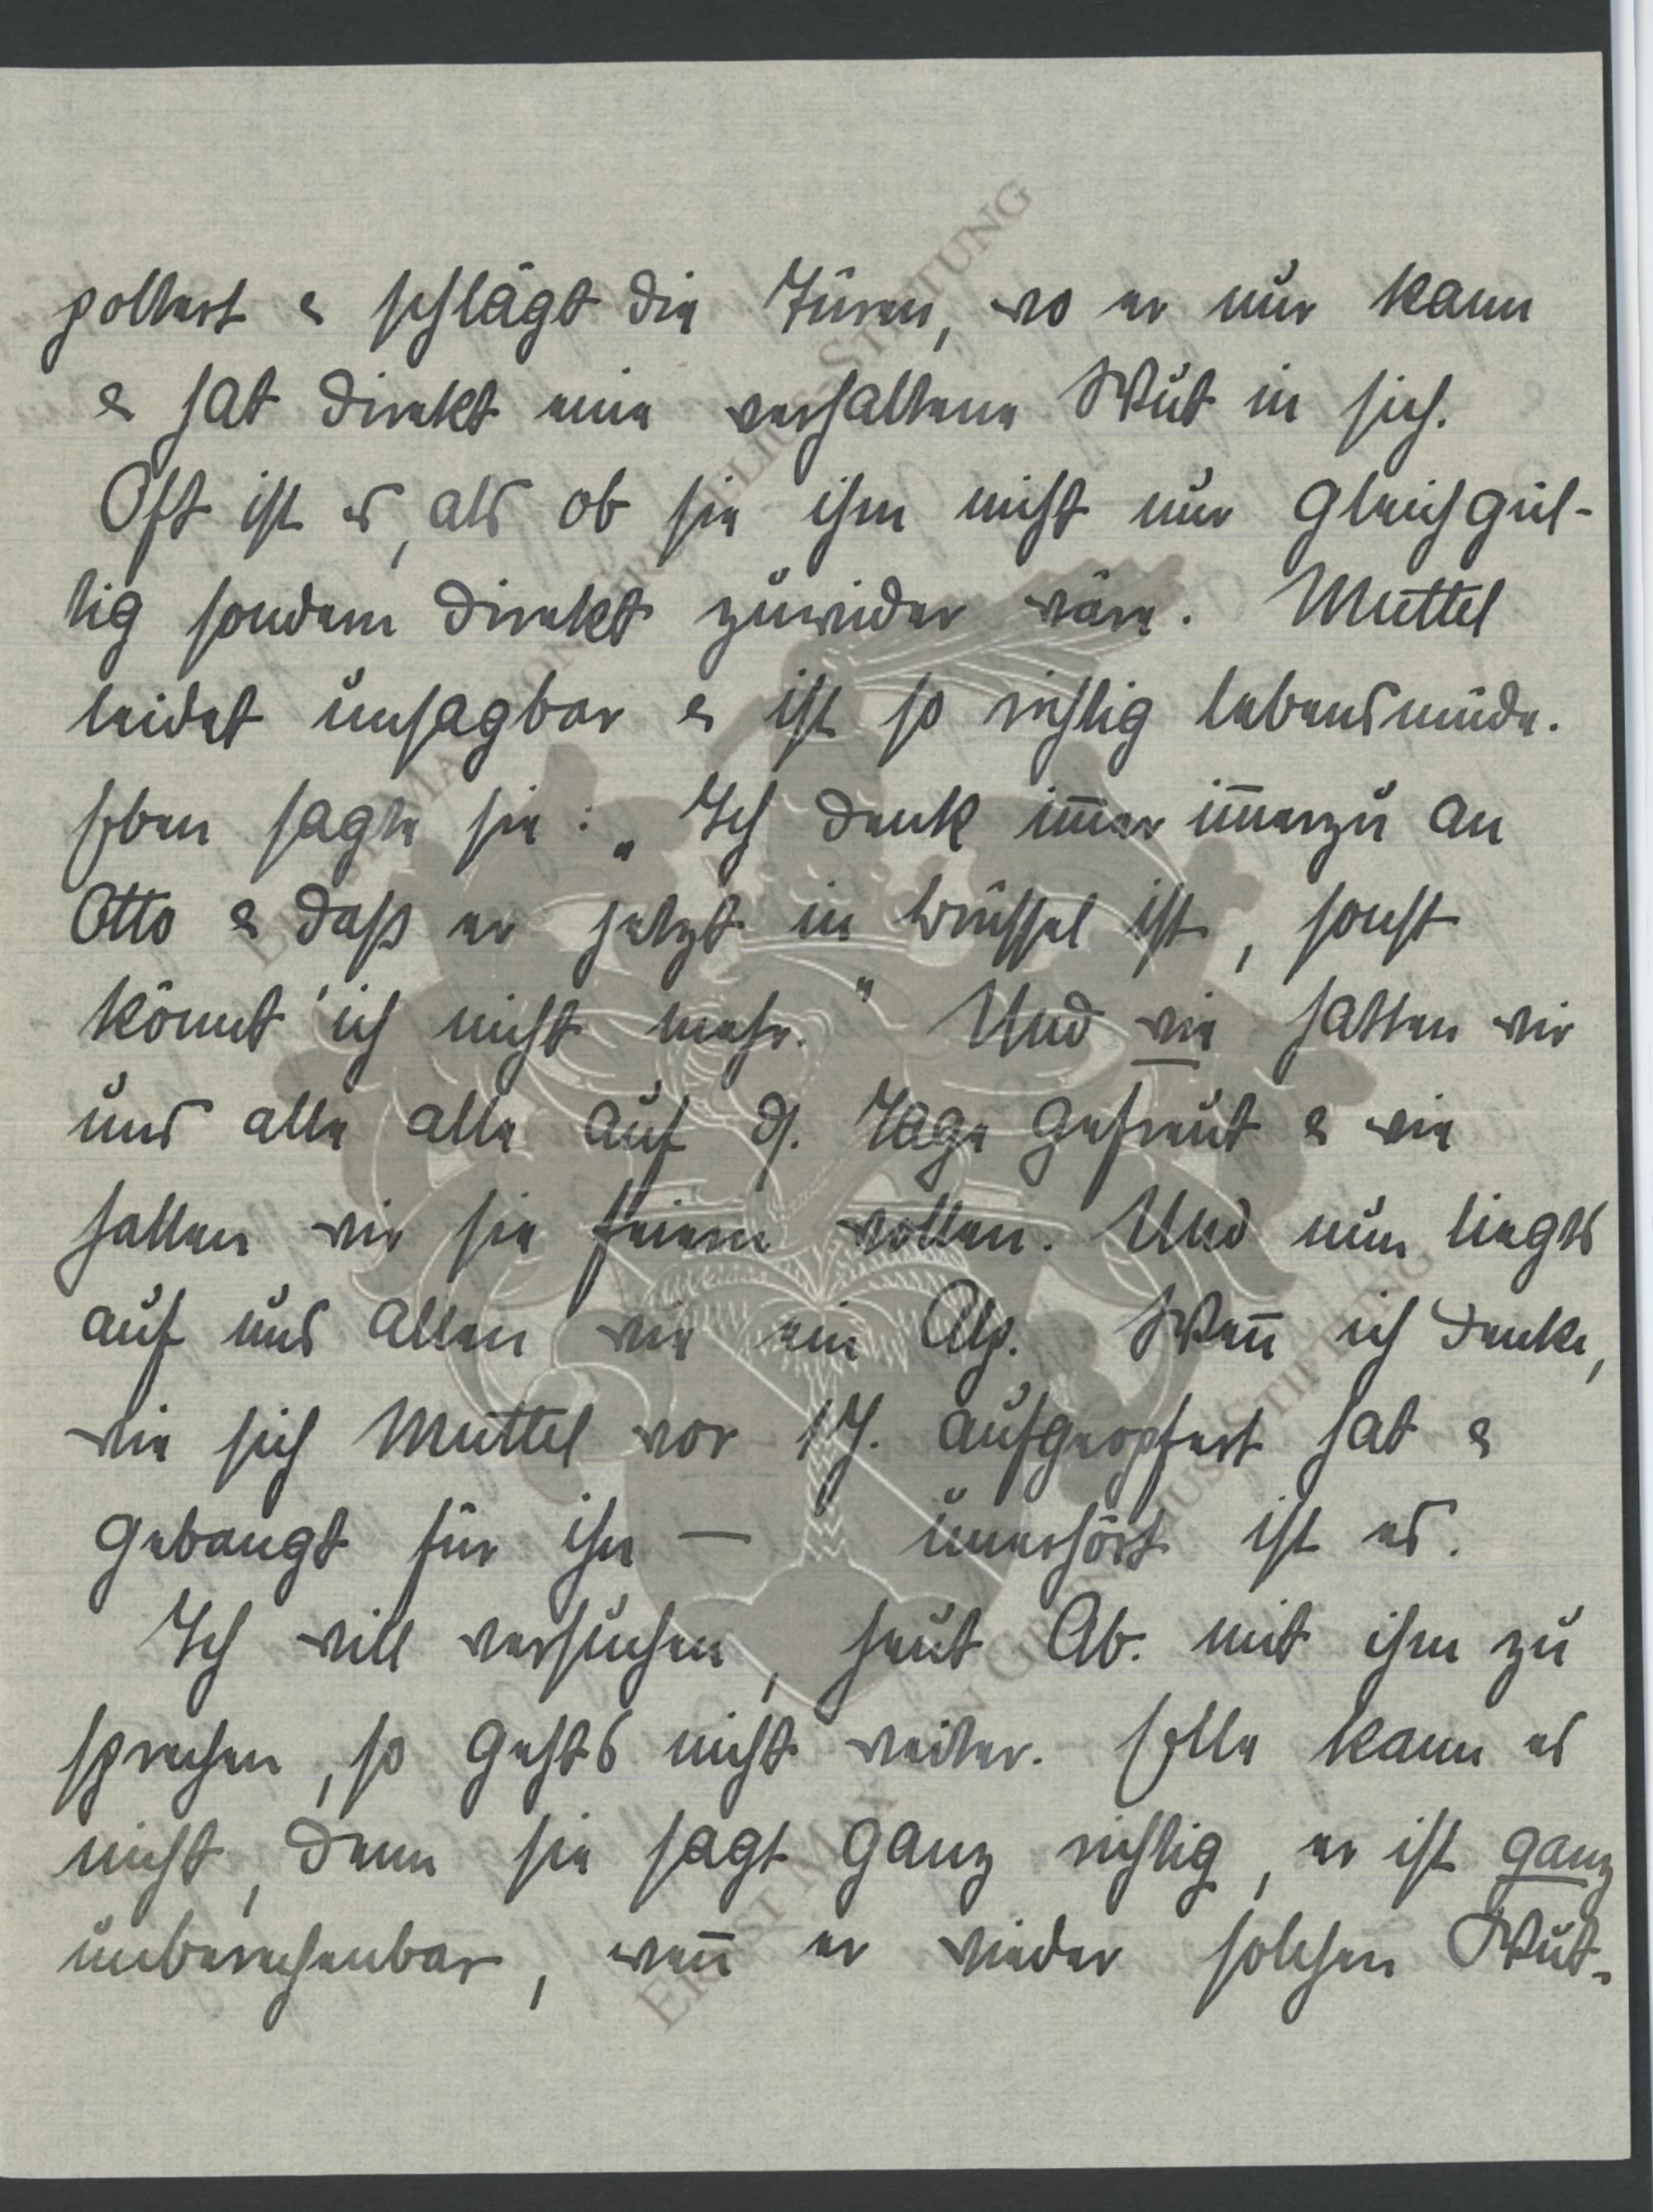 poltert & schlägt die Türen, wo er nur kann
& hat direkt eine verhaltene Wut in sich.
Oft ist es, als ob sie ihm nicht nur gleichgül-
tig sondern direkt zuwider wäre. Muttel
leidet unsagbar & ist so richtig lebensmüde.
Eben sagte sie: „Ich denk im̅er im̅erzu an
Otto & daß er jetzt in Brüssel ist, sonst
könnt' ich nicht mehr." Und wie hatten wir
uns alle alle auf d. Tage gefreut & wie
hatten wir sie feiern wollen. Und nun liegts
auf uns allen wie ein Alp. Wen̅ ich denke,
wie sich Muttel vor 1 J. aufgeopfert hat &
gebangt für ihn — unerhört ist es.
Ich will versuchen, heut Ab. mit ihm zu
sprechen, so gehts nicht weiter. Elle kann es
nicht, denn sie sagt ganz richtig, er ist ganz
unberechenbar, wen̅ er wieder solchen Wut-
ERNST MAX VON GRUNELIUS-STIFTUNG
ERNST MAX VON GRUNELIUS-STIFTUNG